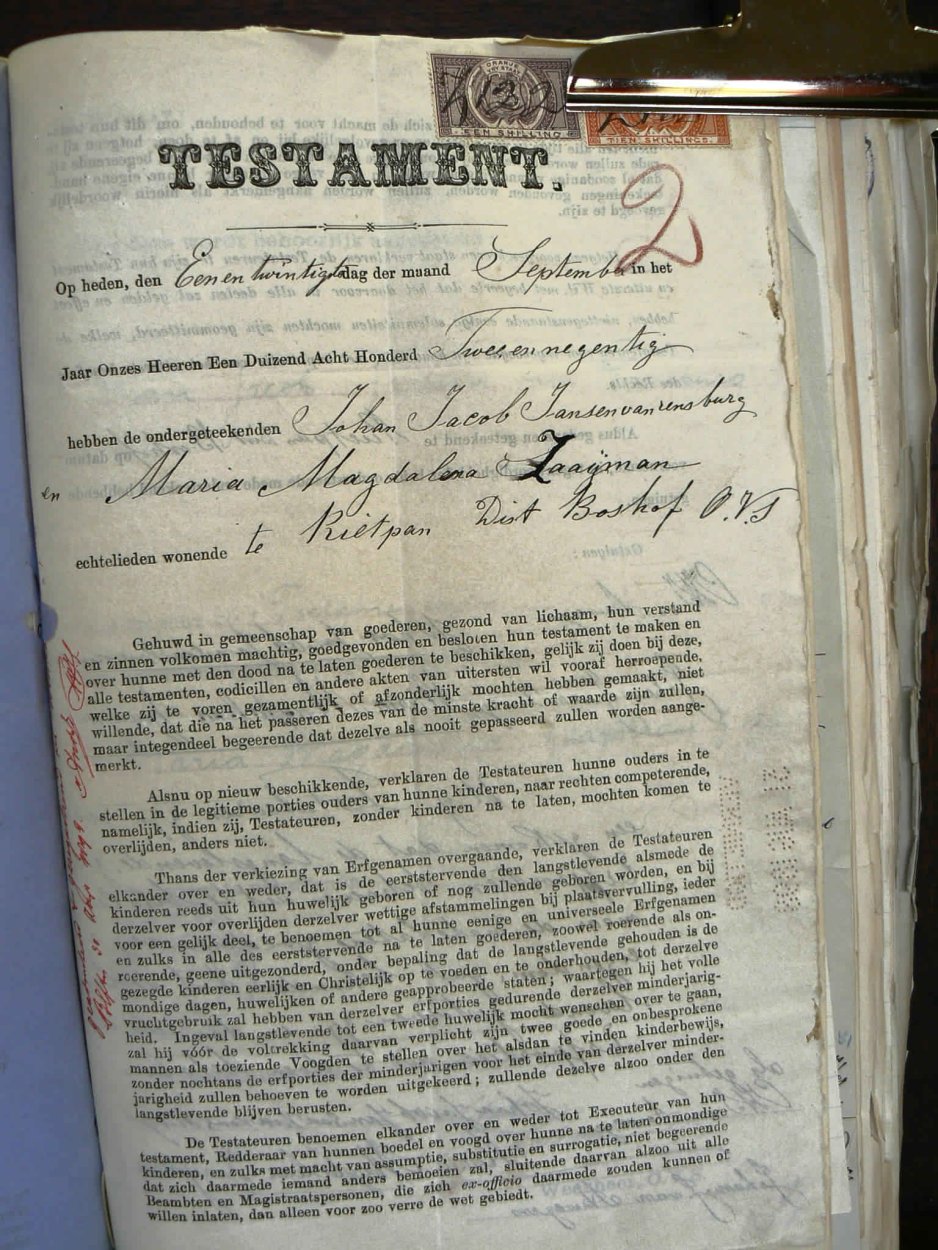 EEN SHILLING
TIEN SHILLINGS.
TESTAMENT.
2
Op heden, den Een en twintigste dag der maand September in het
Jaar Onzes Heeren Een Duizend Acht Honderd Twee en negentig
hebben de ondergeteekenden Johan Jacob Jansen van rensburg
en Maria Magdalena Zaayman
echtelieden wonende te Rietpan Dist Boshof O.V.S
Gehuwd in gemeenschap van goederen, gezond van lichaam, hun verstand
en zinnen volkomen machtig, goedgevonden en besloten hun testament te maken en
over hunne met den dood na te laten goederen te beschikken, gelijk zij doen bij deze,
alle testamenten, codicillen en andere akten van uitersten wil vooraf herroepende,
welke zij te voren gezamentlijk of afzonderlijk mochten hebben gemaakt, niet
willende, dat die na het passeren dezes van de minste kracht of waarde zijn zullen,
maar integendeel begeerende dat dezelve als nooit gepasseerd zullen worden aange-
merkt.
Alsnu op nieuw beschikkende, verklaren de Testateuren hunne ouders in te
stellen in de legitieme porties ouders van hunne kinderen, naar rechten competerende,
namelijk, indien zij, Testateuren, zonder kinderen na te laten, mochten komen te
overlijden, anders niet.
Thans der verkiezing van Erfgenamen overgaande, verklaren de Testateuren
elkander over en weder, dat is de eerststervende den langstlevende alsmede de
kinderen reeds uit hun huwelijk geboren of nog zullende geboren worden, en bij
derzelver voor overlijden derzelver wettige afstammelingen bij plaatsvervulling, ieder
voor een gelijk deel, te benoemen tot al hunne eenige en universeele Erfgenamen
en zulks in alle des eerststervende na te laten goederen, zoowel roerende als on-
roerende, geene uitgezonderd, onder bepaling dat de langstlevende gehouden is de
gezegde kinderen eerlijk en Christelijk op te voeden en te onderhouden, tot derzelve
mondige dagen, huwelijken of andere geapprobeerde staten; waartegen hij het volle
vruchtgebruik zal hebben van derzelver erfporties gedurende derzelver minderjarig-
heid. Ingeval langstlevende tot een tweede huwelijk mocht wenschen over te gaan,
zal hij vóór de voltrekking daarvan verplicht zijn twee goede en onbesprokene
mannen als toeziende Voogden te stellen over het alsdan te vinden kinderbewijs,
zonder nochtans de erfporties der minderjarigen voor het einde van derzelver minder-
jarigheid zullen behoeven te worden uitgekeerd; zullende dezelve alzoo onder den
langstlevende blijven berusten.
De Testateuren benoemen elkander over en weder tot Executeur van hun
testament, Redderaar van hunnen boedel en voogd over hunne na te laten onmondige
kinderen, en zulks met macht van assumptie, substitutie en surrogatie, niet begeerende
dat zich daarmede iemand anders bemoeien zal, sluitende daarvan alzoo uit alle
Beambten en Magistraatspersonen, die zich ex-officio daarmede zouden kunnen of
willen inlaten, dan alleen voor zoo verre de wet gebiedt.